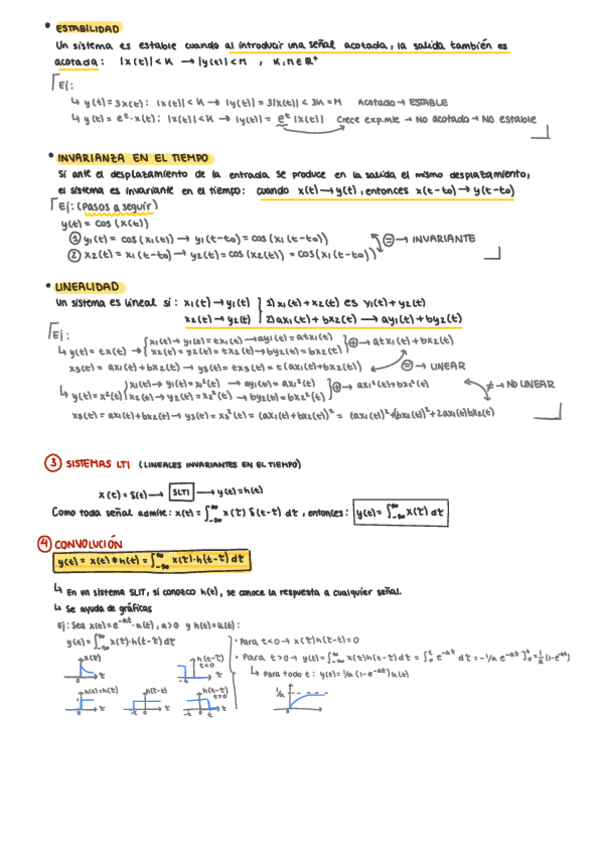 • ESTABILIDAD
Un sistema es estable cuando al introducir una señal acotada, la salida también es
acotada: |x(t)|<K → |y(t)|<M , K,M∈R⁺
Ej:
↳ y(t)=3x(t): |x(t)|<K → |y(t)|=3|x(t)|<3K=M Acotado → ESTABLE
↳ y(t)=eᵗ·x(t): |x(t)|<K → |y(t)|=eᵗ|x(t)| Crece exp.mte → No acotado → No estable
• INVARIANZA EN EL TIEMPO
Si ante el desplazamiento de la entrada se produce en la salida el mismo desplazamiento,
el sistema es invariante en el tiempo: cuando x(t)→y(t), entonces x(t-t₀)→y(t-t₀)
Ej: (Pasos a seguir)
y(t)=cos(x(t))
① y₁(t)=cos(x₁(t)) → y₁(t-t₀)=cos(x₁(t-t₀))
= → INVARIANTE
② x₂(t)=x₁(t-t₀) → y₂(t)=cos(x₂(t))=cos(x₁(t-t₀))
• LINEALIDAD
Un sistema es lineal si: x₁(t)→y₁(t) 1) x₁(t)+x₂(t) es y₁(t)+y₂(t)
x₂(t)→y₂(t) 2) ax₁(t)+bx₂(t) → ay₁(t)+by₂(t)
Ej:
x₁(t)→y₁(t)=tx₁(t)→ay₁(t)=atx₁(t)
↳ y(t)=tx(t)→ x₂(t)=y₂(t)=tx₂(t)→by₂(t)=btx₂(t) ⊕→ atx₁(t)+btx₂(t)
x₃(t)=ax₁(t)+bx₂(t)→y₃(t)=tx₃(t)=t(ax₁(t)+bx₂(t)) = → LINEAR
x₁(t)→y₁(t)=x₁²(t) → ay₁(t)=ax₁²(t)
↳ y(t)=x²(t) x₂(t)→y₂(t)=x₂²(t) → by₂(t)=bx₂²(t) ⊕→ ax₁²(t)+bx₂²(t) ≠→ NO LINEAR
x₃(t)=ax₁(t)+bx₂(t)→y₃(t)=x₃²(t)=(ax₁(t)+bx₂(t))²=(ax₁(t))²+(bx₂(t))²+2ax₁(t)bx₂(t)
③ SISTEMAS LTI (LINEALES INVARIANTES EN EL TIEMPO)
x(t)=δ(t)→ SLTI → y(t)=h(t)
Como toda señal admite: x(t)=∫₋∞^∞ x(τ)δ(t-τ)dτ, entonces: y(t)=∫₋∞^∞ x(τ)dτ
④ CONVOLUCIÓN
y(t)=x(t)*h(t)=∫₋∞^∞ x(τ)·h(t-τ)dτ
↳ En un sistema SLIT, si conozco h(t), se conoce la respuesta a cualquier señal.
↳ Se ayuda de gráficas
Ej: Sea x(t)=e⁻ᵃᵗ·u(t), a>0 y h(t)=u(t):
y(t)=∫₋∞^∞ x(τ)·h(t-τ)dτ
• Para t<0 → x(τ)h(t-τ)=0
• Para t>0 → y(t)=∫₋∞^∞ x(τ)h(t-τ)dτ=∫₀ᵗ e⁻ᵃᵗ dτ=-1/a e⁻ᵃᵗ]₀ᵗ=1/a(1-e⁻ᵃᵗ)
↳ Para todo t: y(t)=1/a(1-e⁻ᵃᵗ)u(t)
x(τ) τ
h(t-τ) t<0 -t 0 τ
h(τ)=h(t) 0 τ
h(t-τ) -t 0 τ
h(t-τ) t>0 -t 0 t τ
1/a 0 τ